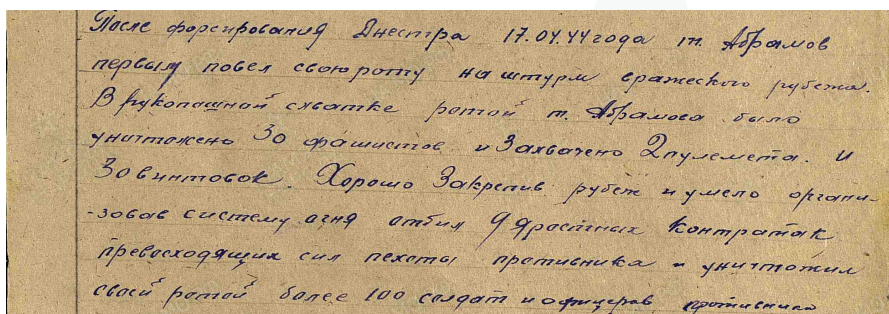 После форсирования Днестра 17.04.44 года т. Абрамов
первым повел свою роту на штурм вражеского рубежа.
В рукопашной схватке ротой т. Абрамова было
уничтожено 30 фашистов и захвачено 2 пулемета. и
30 винтовок. Хорошо закрепив рубеж и умело органи-
-зовав систему огня отбил 9 яростных контратак
превосходящих сил пехоты противника и уничтожил
своей ротой более 100 солдат и офицеров противника